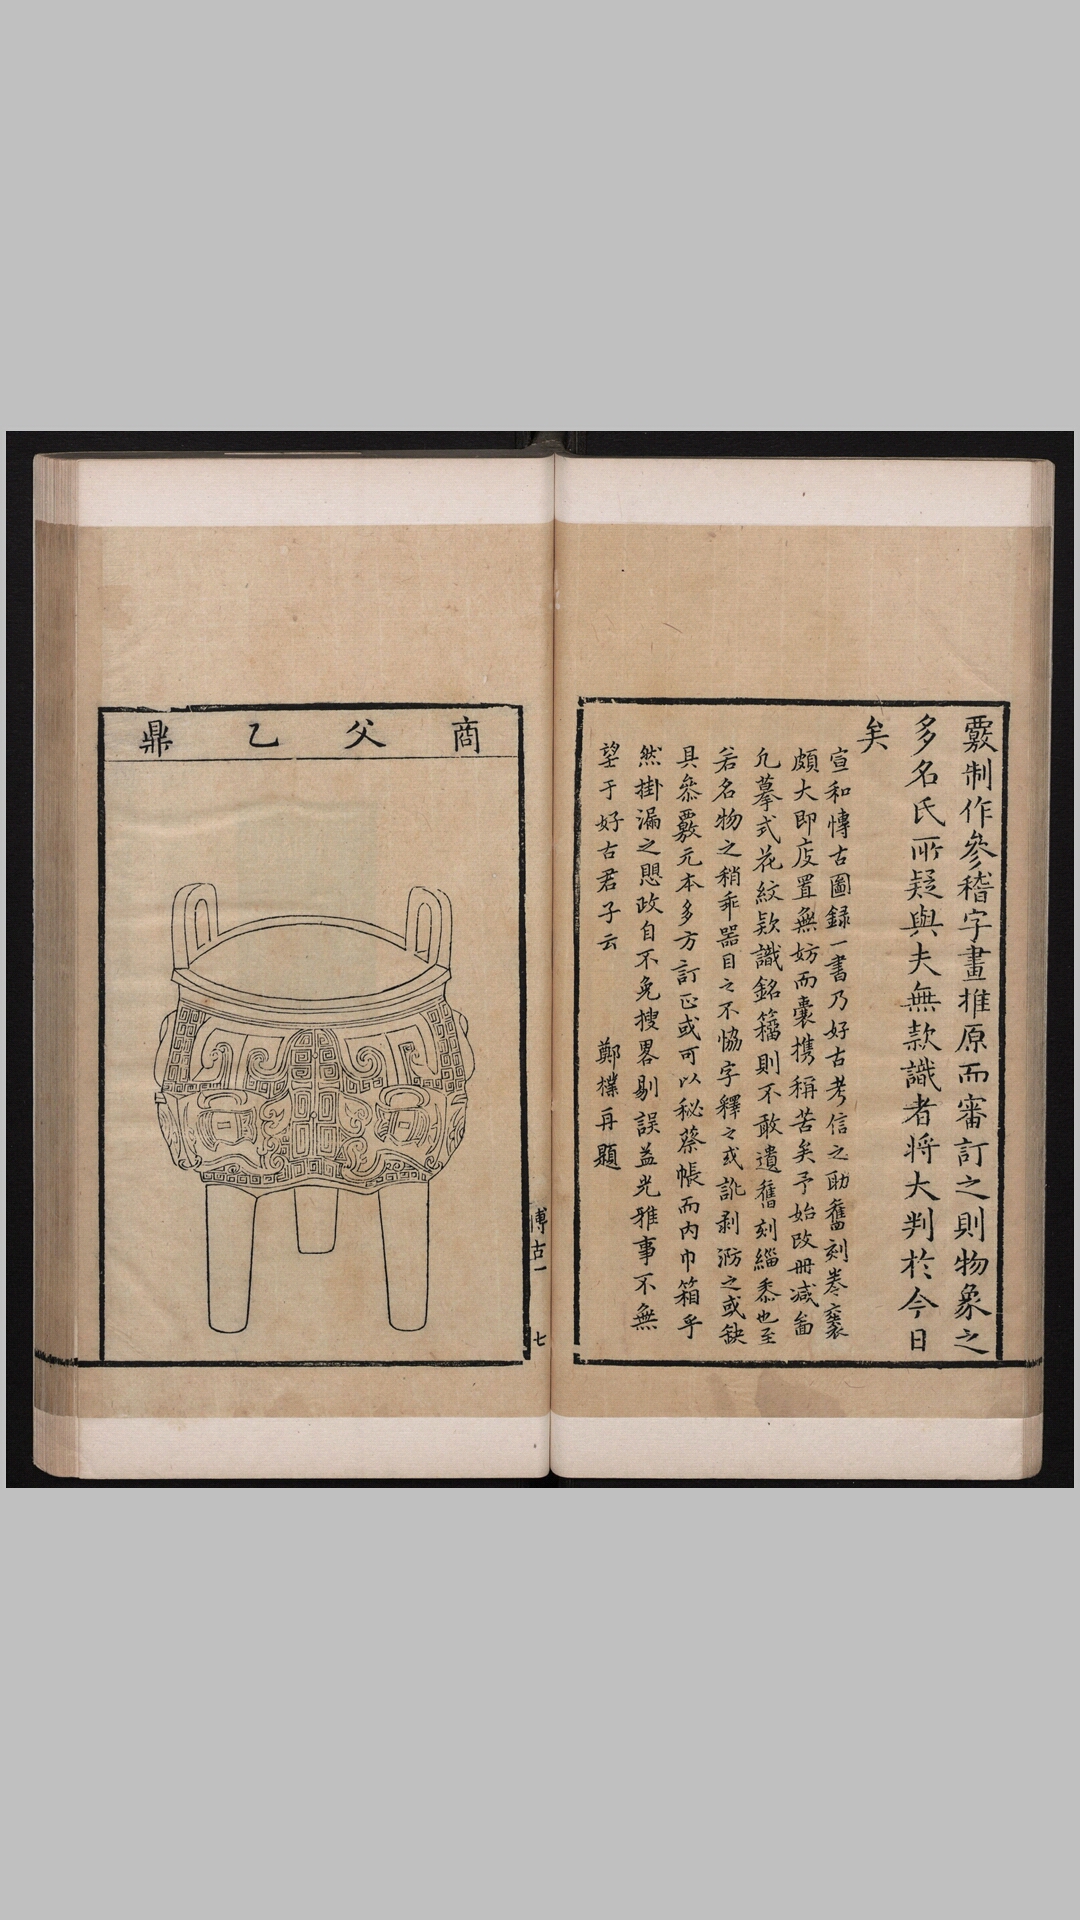 覈制作參稽字畫推原而審訂之則物象之
多名氏所疑與夫無款識者將大判於今日
矣
宣和愽古圖録一書乃好古考信之助舊刻卷袠
頗大即庋置無妨而囊攜稱苦矣予始改册減畚
凡摹式花紋欵識銘籀則不敢遺舊刻緇黍也至
若名物之稍乖器目之不恊字釋之或訛剥泐之或缺
具叅覈元本多方訂正或可以秘蔡帳而内巾箱乎
然掛漏之愳政自不免搜畧剔誤益光雅事不無
望于好古君子云 鄭樸再題
商父乙鼎
博古一 七